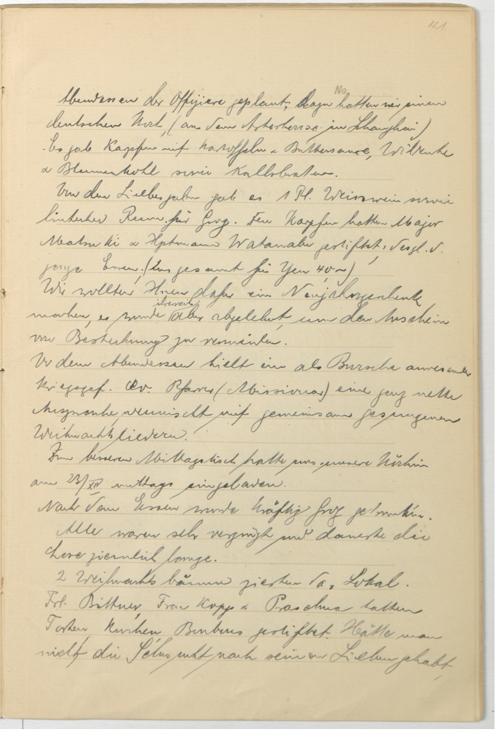 121
Abendessen der Offiziere geplant, dazu hatten wir einen
deutschen Koch, (aus dem Astorhouse in Shanghai)
Es gab Karpfen mit Kartoffeln u Buttersauce, Wildente
u Blumenkohl sowie Kalbsbraten.
Von den Liebesgaben gab es 1 Fl. Weisswein sowie
Rum für Grog. Den Karpfen hatten Major
u Hptmann Watanabe gestiftet, desgl. d.
Enten, (Insgesamt für Yen 40.-)
Wir wollten Ihnen dafür ein Neujahrsgeschenk
machen, es wurde aber abgelehnt, um den Anschein
von Bestechung zu vermeiden.
Vor dem Abendessen hielt ein als Bursche anwesender
Kriegsgef. ev. Pfarrer (Missionar) eine ganz nette
Ansprache vermischt mit gemeinsam gesungenen
Weihnachtsliedern.
Zum besseren Mittagstisch hatte uns unsere
am 23/XII mittags eingeladen.
Nach dem Essen wurde kräftig Grog getrunken.
Alle waren sehr vergnügt und dauerte die
ziemlich lange.
2 Weihnachtsbäume zierten das Lokal.
Frl. Bittner, Frau Kopp u Praschma hatten
Torten, Kuchen, Bonbons gestiftet. Hätte man
nicht die Sehnsucht nach seinen Lieben gehabt,